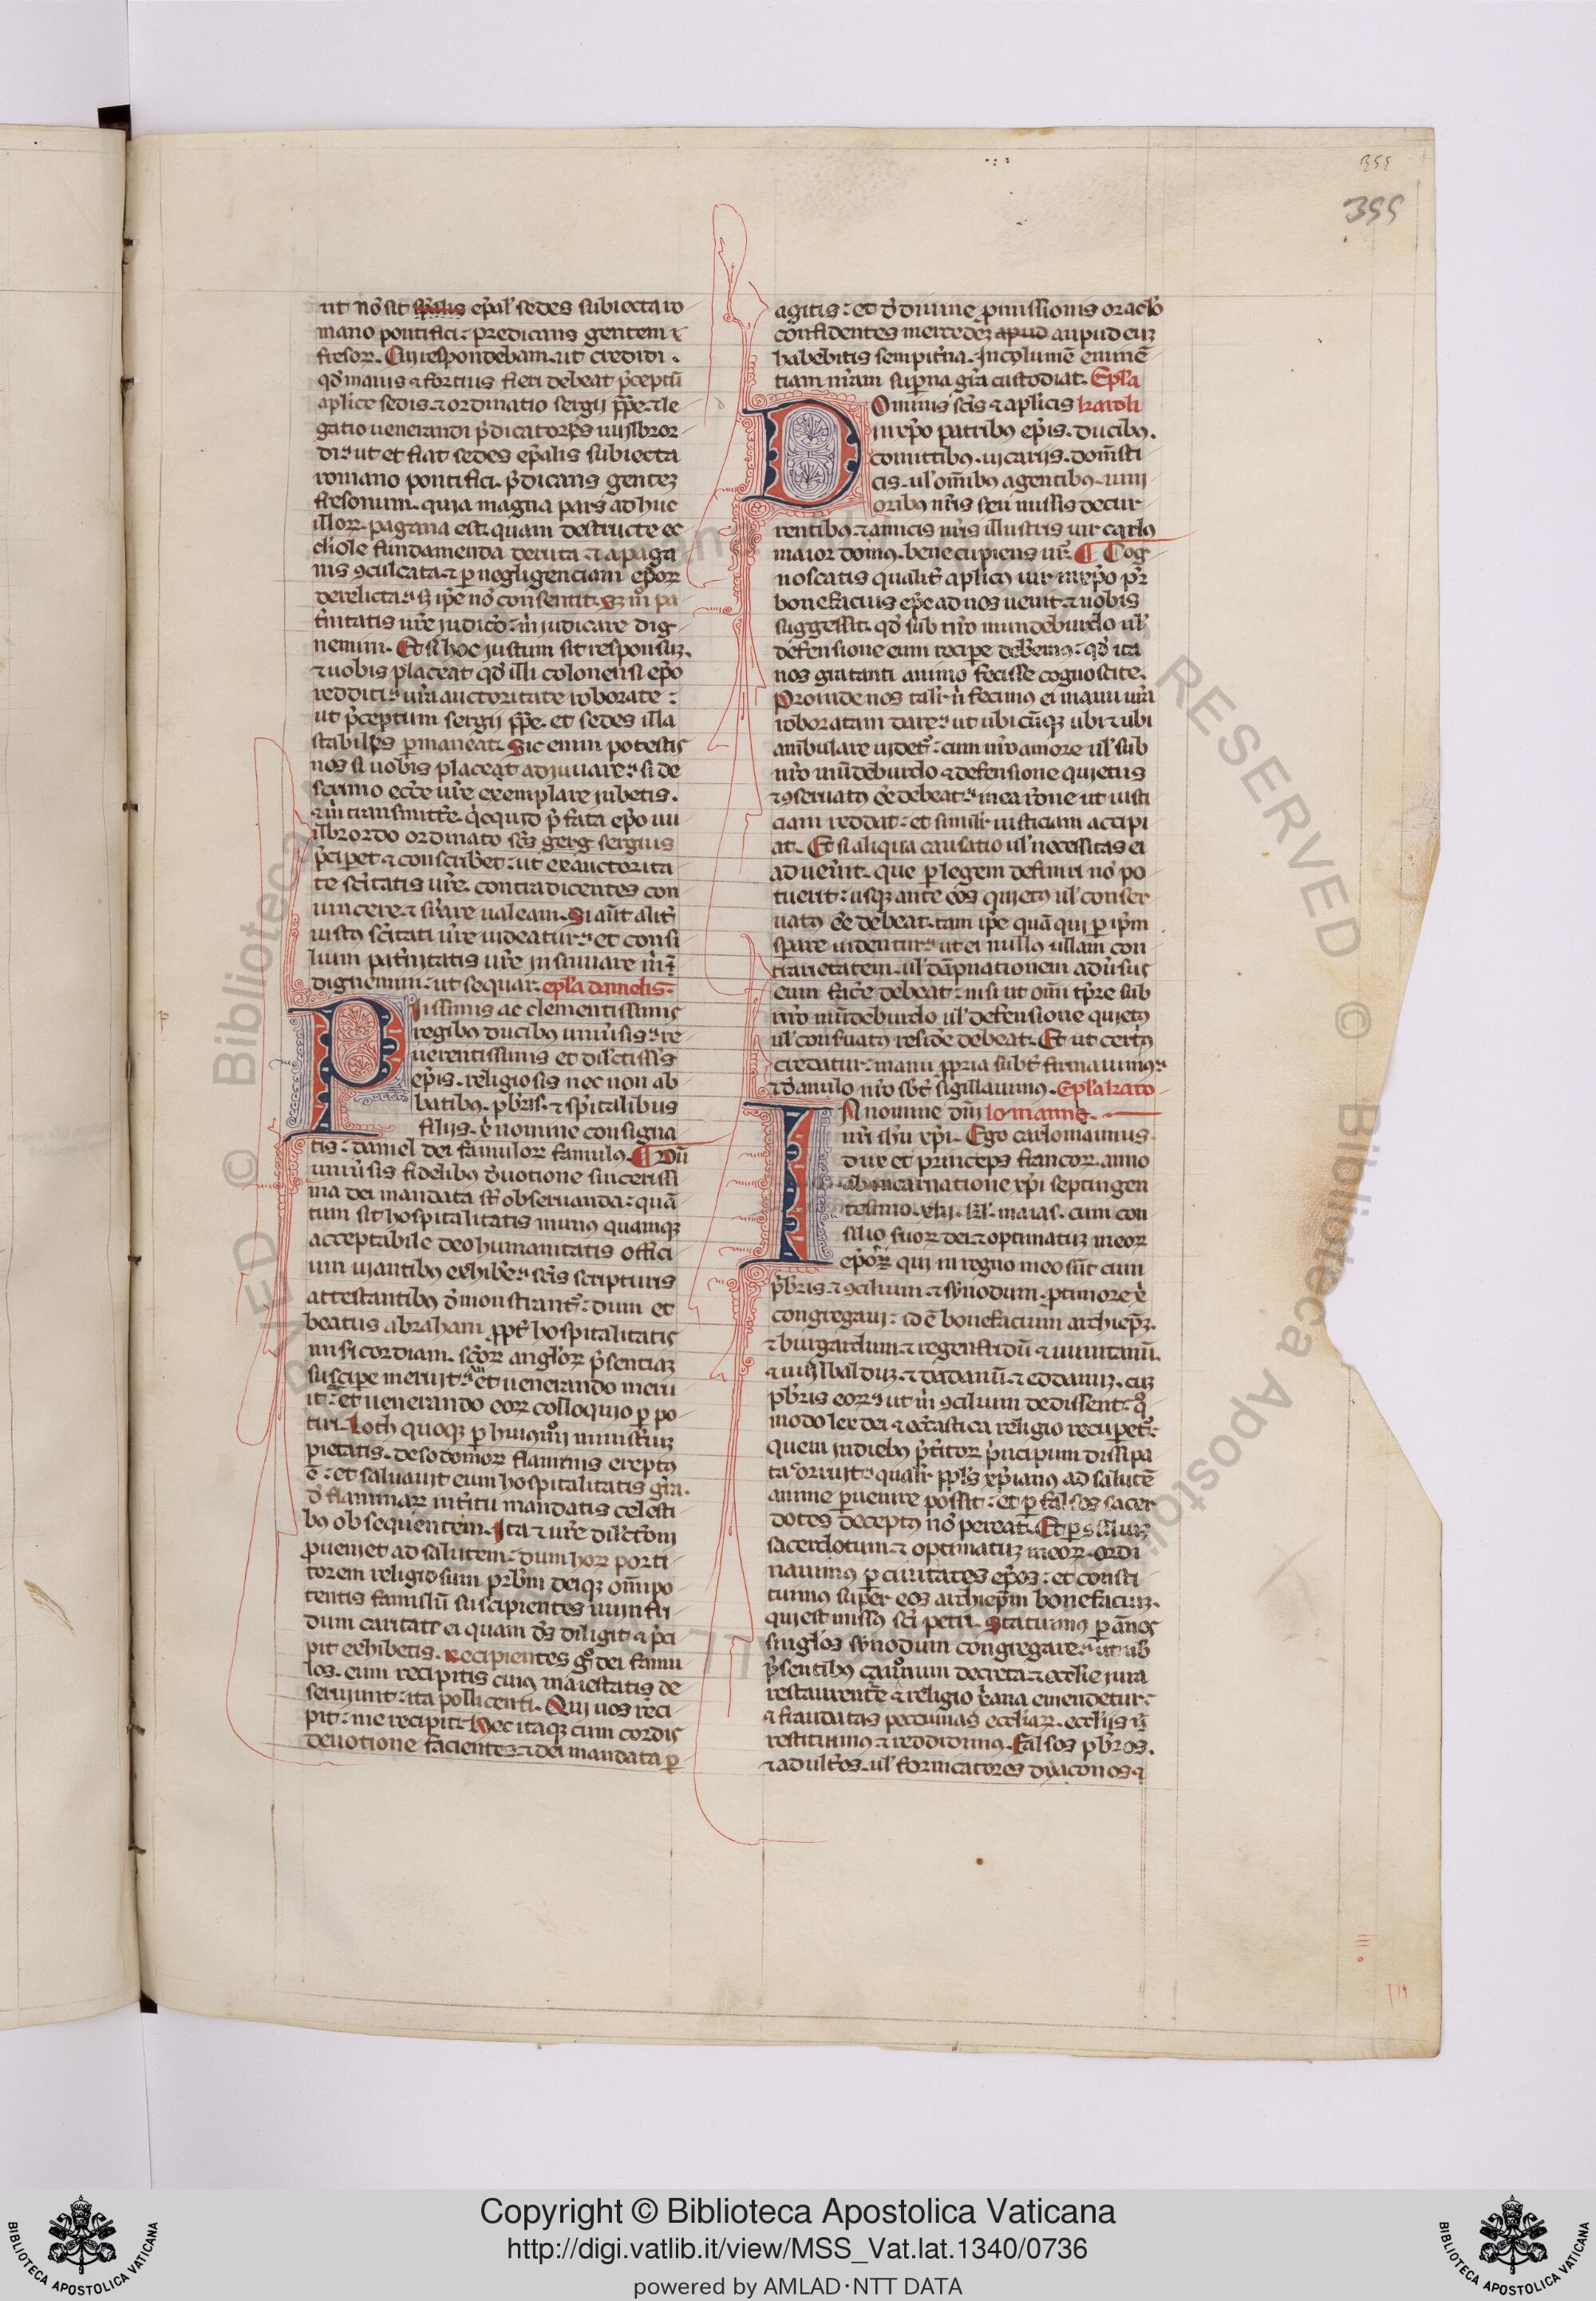 355
355
ut nō sit sp̄alis ep̄al' sedes subiecta ro
mano pontifici: predicans gentem
fresoꝝ. Cui respondebam. ut credidi.
qd̄ maius ⁊ fortius fieri debeat p̄ceptū
aplice sedis. ⁊ ordinatio sergij pp̄e. ⁊ le
gatio uenerandi p̄dicatores uuilbror
di. ut et fiat sedes ep̄alis subiecta
romano pontifici. p̄dicans genteꝫ
fresonum. quia magna pars adhuc
illoꝝ. pagana est. quam destructe ec
cliole fundamenda deruta ⁊ a paga
nis ꝯculcata. ⁊ ꝑ negligenciam ep̄oꝝ
derelicta. sꝫ ip̄e nō consentit. Sꝫ mō pa
t̄nitatis ur̄e judicō. m̄ judicare dig
nemini. Et si hoc justum sit responsuꝫ.
⁊ uobis placeat qd̄ illi colonensi ep̄o
redditi. ur̄a auctoritate roborate:
ut p̄ceptum sergij pp̄e. et sedes illa
stabilis ꝑmaneat. Sic enim potestis
nos si uobis placeat adiuuare. si de
scrinio eccl̄e ur̄e exemplare jubetis.
⁊ m̄ transmitt̄e. qͥcquid p̄fata ep̄o uu
ilbrordo ordinato sc̄s gerg sergius
p̄cipet ⁊ conscribet. ut ex auctorita
te sc̄itatis ur̄e. contradicentes con
uincere ⁊ sup̄are ualeam. Si aut̄ alit̄
iustꝰ sc̄itati ur̄e uideatur. et consi
lium pat̄nitatis ur̄e insinuare m̄
dignemini. ut sequar. epl'a danielis.
Piissimis ac clementissimis
regibꝰ ducibꝰ uniūsis. re
uerentissimis et dilctissīs
ep̄is. religiosis nec non ab
batibꝰ. pb̄ris. ⁊ sp̄italibus
filijs. x̄ nomine consigna
tis: daniel dei famuloꝝ famulꝰ. Dū
uniū̄sis fidelibꝰ d̄uotione sincerissi
ma dei mandata sūt obseruanda: quā
tum sit hospitalitatis munꝰ quamqꝫ
acceptabile deo humanitatis offici
um uiantibꝰ exhibe͛. sc̄is scripturis
attestantibꝰ d̄monstrant͛: dum et
beatus abraham ꝓpt̄ hospitalitatis
misicordiam. sc̄oꝝ angl'oꝝ p̄sentiaꝫ
suscipe meruit. et uenerando meru
it: et uenerando eoꝝ colloquio ꝑpo
tiri. Loth quoqꝫ ꝑ huiꝰmōi minist̄iuꝫ
pietatis. de sodomoꝝ flammis ereptꝰ
ē: et saluauit eum hospitalitatis gr̄a.
d̄ flammaꝝ int̄itu mandatis celesti
bꝰ obsequentem. Ita ⁊ ur̄e dilct̄oni
ꝓueniet ad salutem: dum hoꝝ porti
torem religiosum pr̄bm̄ deiqꝫ om̄ipo
tentis famulū suscipientes uuinfri
dum caritate ei quam ds̄ diligit ⁊ p̄ci
pit exhibetis. Recipientes gͦ dei famu
los. eum recipitis cuiꝰ maiestatis de
seruiunt: ita pollicenti. Qui uos reci
pit: me recipit. Hec itaqꝫ cum cordis
deuotione facientes. ⁊ dei mandata ꝑ
agitis: et d̄ diuine ꝓmissionis oraclo
confidentes mercedeꝫ apud aupud euꝫ
habebitis sempit̄na. Incolumē eminē
tiam ur̄am sup̄na gr̄a custodiat. Epl'a
Ominis sc̄is ⁊ aplicis karoli
in xp̄o patribꝰ ep̄is. ducibꝰ.
comitibꝰ. uicarijs. dom̄sti
cis. ul' om̄ibꝰ agentibꝰ. iuni
oribꝰ nr̄is seu missis decur
rentibꝰ. ⁊ amicis nr̄is illustris uir carlꝰ
maior domꝰ. bene cupiens ur̄. Cog
noscatis qualit̄ aplicꝰ uir in xp̄o pr̄
bonefacius ep̄c ad nos uenit. ⁊ uobis
suggessit. qd̄ sub nr̄o mundeburdo ul'
defensione eum recipe deb̄emꝰ: qd̄ ita
nos gratanti animo fecisse cognoscite.
Proinde nos talit̄ ei fecimꝰ ei manu ur̄a
roboratam dare. ut ubicūqꝫ ubi ⁊ ubi
ambulare uidet͛: cum nr̄o amore ul' sub
nr̄o mūdeburdo ⁊ defensione quietus
⁊ ꝯseruatꝰ eē debeat. in ea rōne ut iusti
ciam reddat: et simlit̄ iusticiam accipi
at. Et si aliqua causatio ul' necessitas ei
aduen̄it. que ꝑ legem definiri nō po
tuerit: usqꝫ ante eos quietꝰ ul' conser
uatꝰ eē debeat. tam ip̄e quā qui ꝑ ip̄m
sperare uidentur. ut ei nullꝰ ullam con
trarietatem. ul' dāpnationem adūsus
eum fac̄e debeat: nisi ut om̄i tp̄re sub
nr̄o mūdeburdo ul' defensione quietꝰ
ul' conseruatꝰ resid̄e debeat. Et ut certiꝰ
credatur: manu ꝓpria subt̄ firmauimꝰ.
⁊ d̄ anulo nr̄o sbt̄ sigillauimꝰ. Epl'a karo
In nomine dn̄i lo manni.
nr̄i ih̄u xp̄i. Ego carlomannus.
dux et princeps francoꝝ. anno
ab incarnatione xp̄i septingen
tesimo. xlij. kl'. maias. cum con
silio suoꝝ dei ⁊ optimatuꝫ meoꝝ
ep̄oꝝ qui in regno meo sūt cum
p̄b̄ris. ⁊ ꝯcilium ⁊ sẏnodum. ꝓ timore x̄
congregaui: id ē bonefacium archiep̄ꝫ.
⁊ burgardum. ⁊ regenfridū ⁊ uuintanū.
⁊ uuilbalduꝫ. ⁊ dadanū. ⁊ eddanuꝫ. cuꝫ
pb̄ris eoꝝ. ut m̄ ꝯcilium dedissent. qͦ
modo lex dei ⁊ ecc̄astica religio recup̄et͛.
quem in diebꝰ p̄t̄itoꝝ p̄ncipum dissipa
ta corruit. qualit̄ ppl's xp̄ianꝰ ad salutē
anime ꝑuenire possit: et ꝑ falsos sacer
dotes deceptꝰ nō pereat. Et ꝑ ꝯsiliuꝫ
sacerdotum ⁊ optimatuꝫ meoꝝ. ordi
nauimꝰ ꝑ ciuitates ep̄os: et consti
tuimꝰ super eos archiep̄m bonefaciuꝫ.
qui est missꝰ sc̄i petri. Statuimꝰ ꝑ ān̄os
singl'os sẏnodum congregare. ut ub
p̄sentibꝰ canonum decreta ⁊ ecclie iura
restaurent͛ ⁊ religio x̄iana emendetur:
⁊ fraudatas peccunias eccliaꝝ. eccliis
restituimꝰ ⁊ reddidimꝰ. falsos pb̄ros.
⁊ adult̄os. ul' fornicatores dẏaconos ⁊
© Biblioteca Apostolica Vaticana
ALL RIGHTS RESERVED
Copyright © Biblioteca Apostolica Vaticana
http://digi.vatlib.it/view/MSS_Vat.lat.1340/0736
powered by AMLAD·NTT DATA
BIBLIOTECA APOSTOLICA VATICANA
BIBLIOTECA APOSTOLICA VATICANA